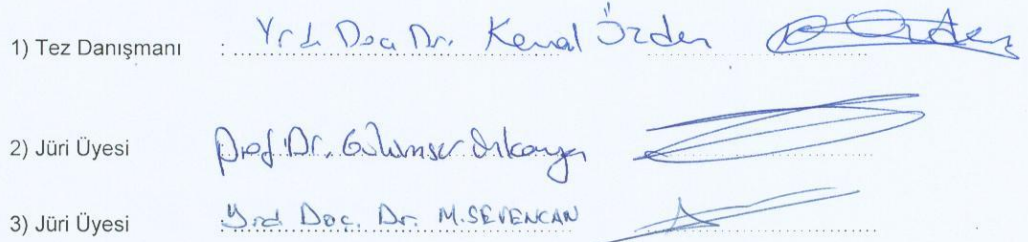 1) Tez Danışmanı : Yrd. Doç. Dr. Kemal Özden
2) Jüri Üyesi Prof. Dr. Gülümser
3) Jüri Üyesi : Yrd. Doç. Dr. M. SEVENCAN